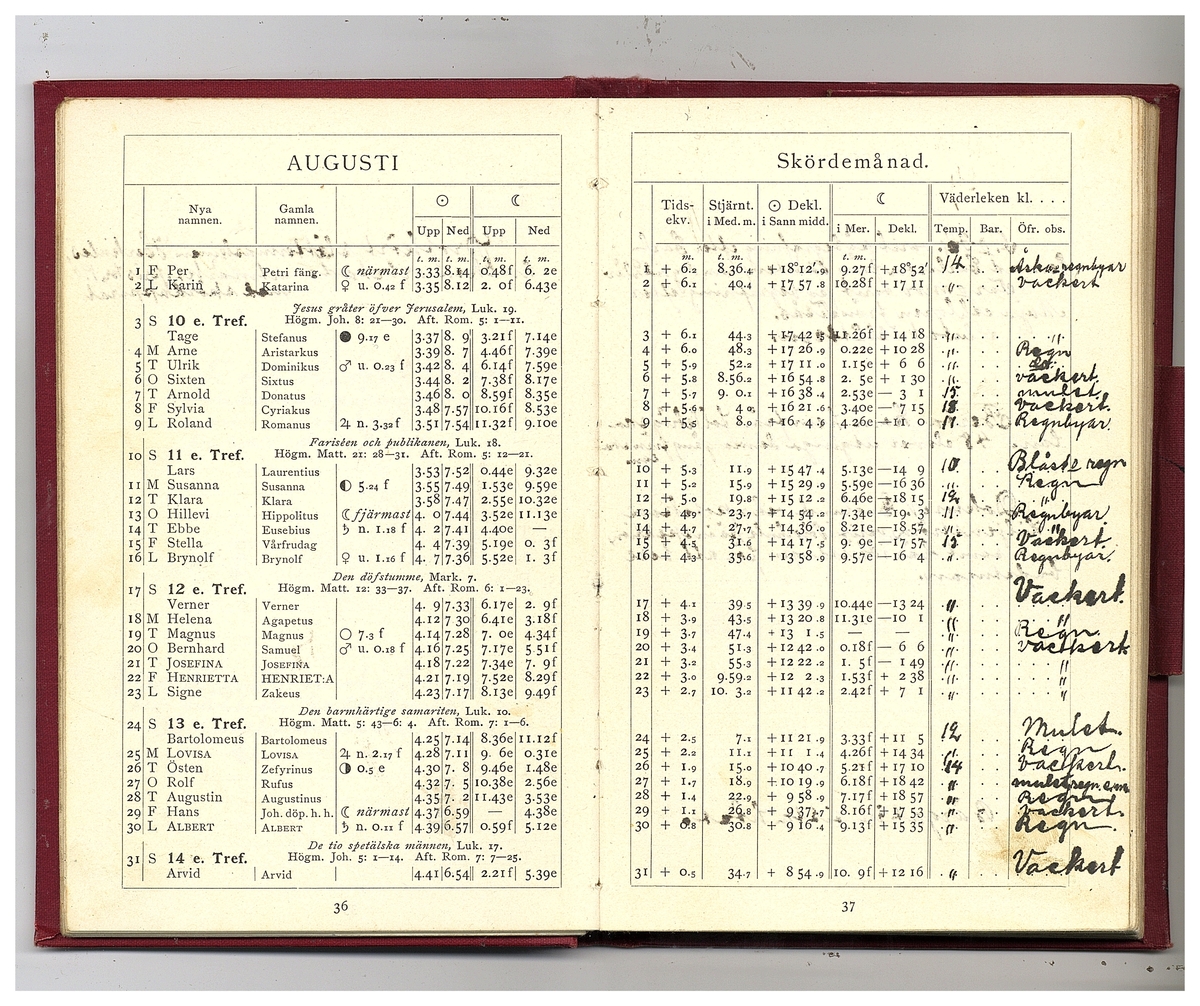 AUGUSTI
Nya namnen. Gamla namnen. ☉ ☾
Upp Ned Upp Ned
t. m. t. m. t. m. t. m.
1 F Per Petri fäng. ☾ närmast 3.33 8.14 0.48f 6. 2e
2 L Karin Katarina ♀ u. 0.42 f 3.35 8.12 2. 0f 6.43e
Jesus gråter öfver Jerusalem, Luk. 19.
3 S 10 e. Tref. Högm. Joh. 8: 21—30. Aft. Rom. 5: 1—11.
Tage Stefanus ● 9.17 e 3.37 8. 9 3.21f 7.14e
4 M Arne Aristarkus 3.39 8. 7 4.46f 7.39e
5 T Ulrik Dominikus ♂ u. 0.23 f 3.42 8. 4 6.14f 7.59e
6 O Sixten Sixtus 3.44 8. 2 7.38f 8.17e
7 T Arnold Donatus 3.46 8. 0 8.59f 8.35e
8 F Sylvia Cyriakus 3.48 7.57 10.16f 8.53e
9 L Roland Romanus ♃ n. 3.32f 3.51 7.54 11.32f 9.10e
Fariséen och publikanen, Luk. 18.
10 S 11 e. Tref. Högm. Matt. 21: 28—31. Aft. Rom. 5: 12—21.
Lars Laurentius 3.53 7.52 0.44e 9.32e
11 M Susanna Susanna ◐ 5.24 f 3.55 7.49 1.53e 9.59e
12 T Klara Klara 3.58 7.47 2.55e 10.32e
13 O Hillevi Hippolitus ☾ fjärmast 4. 0 7.44 3.52e 11.13e
14 T Ebbe Eusebius ♄ n. 1.18 f 4. 2 7.41 4.40e —
15 F Stella Vårfrudag 4. 4 7.39 5.19e 0. 3f
16 L Brynolf Brynolf ♀ u. 1.16 f 4. 7 7.36 5.52e 1. 3f
Den döfstumme, Mark. 7.
17 S 12 e. Tref. Högm. Matt. 12: 33—37. Aft. Rom. 6: 1—23.
Verner Verner 4. 9 7.33 6.17e 2. 9f
18 M Helena Agapetus 4.12 7 30 6.41e 3.18f
19 T Magnus Magnus ○ 7.3 f 4.14 7.28 7. 0e 4.34f
20 O Bernhard Samuel ♂ u. 0.18 f 4.16 7.25 7.17e 5.51f
21 T JOSEFINA JOSEFINA 4.18 7.22 7.34e 7. 9f
22 F HENRIETTA HENRIET:A 4.21 7.19 7.52e 8.29f
23 L Signe Zakeus 4.23 7.17 8.13e 9.49f
Den barmhärtige samariten, Luk. 10.
24 S 13 e. Tref. Högm. Matt. 5: 43—6: 4. Aft. Rom. 7: 1—6.
Bartolomeus Bartolomeus 4.25 7.14 8.36e 11.12f
25 M LOVISA LOVISA ♃ n. 2.17 f 4.28 7.11 9. 6e 0.31e
26 T Östen Zefyrinus ◑ 0.5 e 4.30 7. 8 9.46e 1.48e
27 O Rolf Rufus 4.32 7. 5 10.38e 2.56e
28 T Augustin Augustinus 4.35 7. 2 11.43e 3.53e
29 F Hans Joh. döp. h. h. ☾ närmast 4.37 6.59 — 4.38e
30 L ALBERT ALBERT ♄ n. 0.11 f 4.39 6.57 0.59f 5.12e
De tio spetälska männen, Luk. 17.
31 S 14 e. Tref. Högm. Joh. 5: 1—14. Aft. Rom. 7: 7—25.
Arvid Arvid 4.41 6.54 2.21f 5.39e
36
Skördemånad.
Tids-ekv. Stjärnt. i Med. m. ☉ Dekl. i Sann midd. ☾ Väderleken kl. . . .
i Mer. Dekl. Temp. Bar. Öfr. obs.
m. t. m. t. m.
1 + 6.2 8.36.4 +18°12'.9 9.27f +18°52' 14 Åska regnbyar
2 + 6.1 40.4 +17 57.8 10.28f +17 11 " vackert
3 + 6.1 44.3 +17 42.5 11.26f +14 18 " "
4 + 6.0 48.3 +17 26.9 0.22e +10 28 " Regn
5 + 5.9 52.2 +17 11.0 1.15e + 6 6 "
6 + 5.8 8.56.2 +16 54.8 2. 5e + 1 30 " vackert.
7 + 5.7 9. 0.1 +16 38.4 2.53e — 3 1 15 mulet
8 + 5.6 4.0 +16 21.6 3.40e — 7 15 18 Vackert.
9 + 5.5 8.0 +16 4.6 4.26e —11 0 11 Regnbyar.
10 + 5.3 11.9 +15 47.4 5.13e —14 9 10 Blåste regn
11 + 5.2 15.9 +15 29.9 5.59e —16 36 " Regn
12 + 5.0 19.8 +15 12.2 6.46e —18 15 12 "
13 + 4.9 23.7 +14 54.2 7.34e —19 3 11 Regnbyar
14 + 4.7 27.7 +14 36.0 8.21e —18 57 " "
15 + 4.5 31.6 +14 17.5 9. 9e —17 57 15 Vackert.
16 + 4.3 35.6 +13 58.9 9.57e —16 4 " Regnbyar.
17 + 4.1 39.5 +13 39.9 10.44e —13 24 " Vackert.
18 + 3.9 43.5 +13 20.8 11.31e —10 1 " "
19 + 3.7 47.4 +13 1.5 — — " Regn.
20 + 3.4 51.3 +12 42.0 0.18f — 6 6 " vackert
21 + 3.2 55.3 +12 22.2 1. 5f — 1 49 " "
22 + 3.0 9.59.2 +12 2.3 1.53f + 2 38 " "
23 + 2.7 10. 3.2 +11 42.2 2.42f + 7 1 " "
24 + 2.5 7.1 +11 21.9 3.33f +11 5 12 Mulet.
25 + 2.2 11.1 +11 1.4 4.26f +14 34 " Regn
26 + 1.9 15.0 +10 40.7 5.21f +17 10 14 vackert.
27 + 1.7 18.9 +10 19.9 6.18f +18 42 " mulet regn e.m
28 + 1.4 22.9 + 9 58.9 7.17f +18 57 " Regn
29 + 1.1 26.8 + 9 37.7 8.16f +17 53 " vackert.
30 + 0.8 30.8 + 9 16.4 9.13f +15 35 " Regn.
31 + 0.5 34.7 + 8 54.9 10. 9f +12 16 " Vackert
37